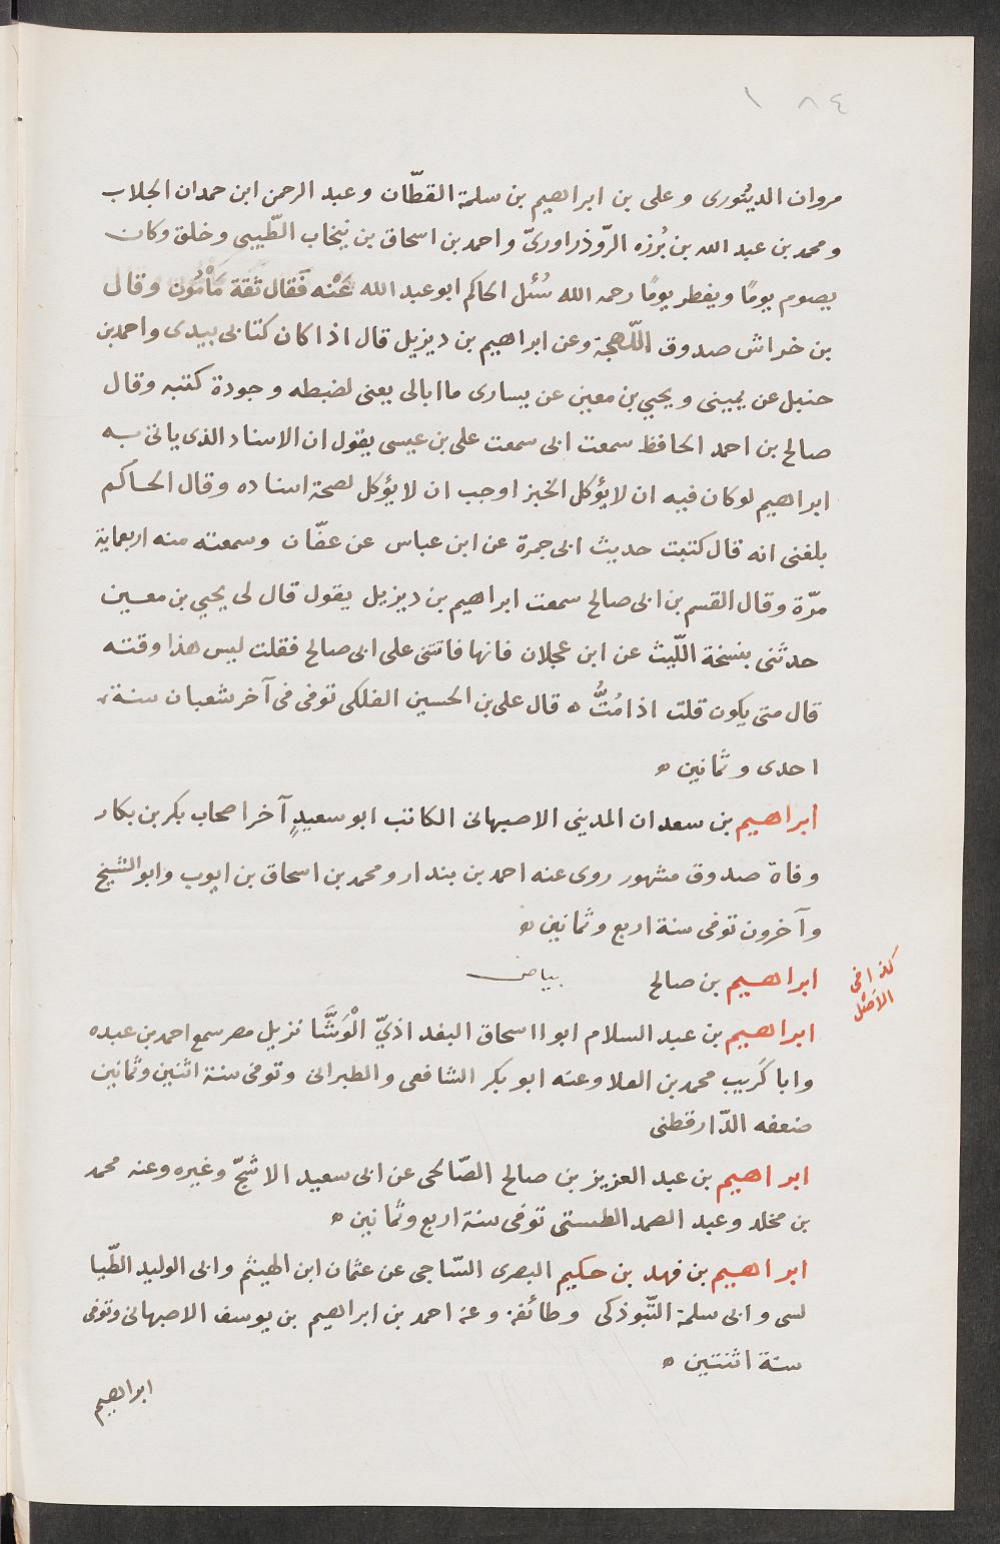 ١ ٨٤
مروان الدينورى وعلى بن ابراهيم بن سلمة القطّان وعبد الرحمن ابن حمدان الجلاب
ومحمد بن عبد الله بن بُرزه الرّوذراورىّ واحمد بن اسحاق بن نيخاب الطّيبى وخلق وكان
يصوم يومًا ويفطر يومًا رحمه الله سُئل الحاكم ابو عبد الله عَنْه فَقال ثَقة مَأمُون وقال
بن خراش صدوق اللّهجة وعن ابراهيم بن ديزيل قال اذا كان كتابى بيدى واحمد بن
حنبل عن يمينى ويحيي بن معين عن يسارى ما ابالى يعنى لضبطه وجودة كتبه وقال
صالح بن احمد الحافظ سمعت ابى سمعت على بن عيسى يقول ان الاسناد الذى ياتى به
ابراهيم لو كان فيه ان لا يؤكل الخبز اوجب ان لا يؤكل لصحة اسناده وقال الحاكم
بلغنى انه قال كتبت حديث ابى جمرة عن ابن عباس عن عفّان وسمعته منه اربعماية
مرّة وقال القسم بن ابى صالح سمعت ابراهيم بن ديزيل يقول قال لى يحيي بن معين
حدثنى بنسخة اللّيث عن ابن عجلان فانها فاتتنى على ابى صالح فقلت ليس هذا وقته
قال متى يكون قلت اذا مُتُّ ه قال على بن الحسين الفلكى توفى فى آخر شعبان سنة
احدى وثمانين ه
ابراهيم بن سعدان المدينى الاصبهانى الكاتب ابو سعيدٍ آخر اصحاب بكر بن بكار
وفاة صدوق مشهور روى عنه احمد بن بندار ومحمد بن اسحاق بن ايوب وابو الشيخ
وآخرون توفى سنة اربع وثمانين ه
ابراهيم بن صالح بياض
كذا فى
الاصل
ابراهيم بن عبد السلام ابو ااسحاق البغداذىّ الْوَشَّا نزيل مصر سمع احمد بن عبده
وابا كُريب محمد بن العلا وعنه ابو بكر الشافعى والطبرانى وتوفى سنة اثنين وثمانين
ضعفه الدّارقطنى
ابراهيم بن عبد العزيز بن صالح الصّالحى عن ابى سعيد الاشجّ وغيره وعنه محمد
بن مخلد وعبد الصمد الطستى توفى سنة اربع وثمانين ه
ابراهيم بن فهد بن حكيم البصرى السّاجى عن عثمان ابن الهيثم وابى الوليد الطّيا
لسى وابى سلمة التّبوذكى وطائفة وعنه احمد بن ابراهيم بن يوسف الاصبهانى وتوفى
سنة اثنتين ه
ابراهيم